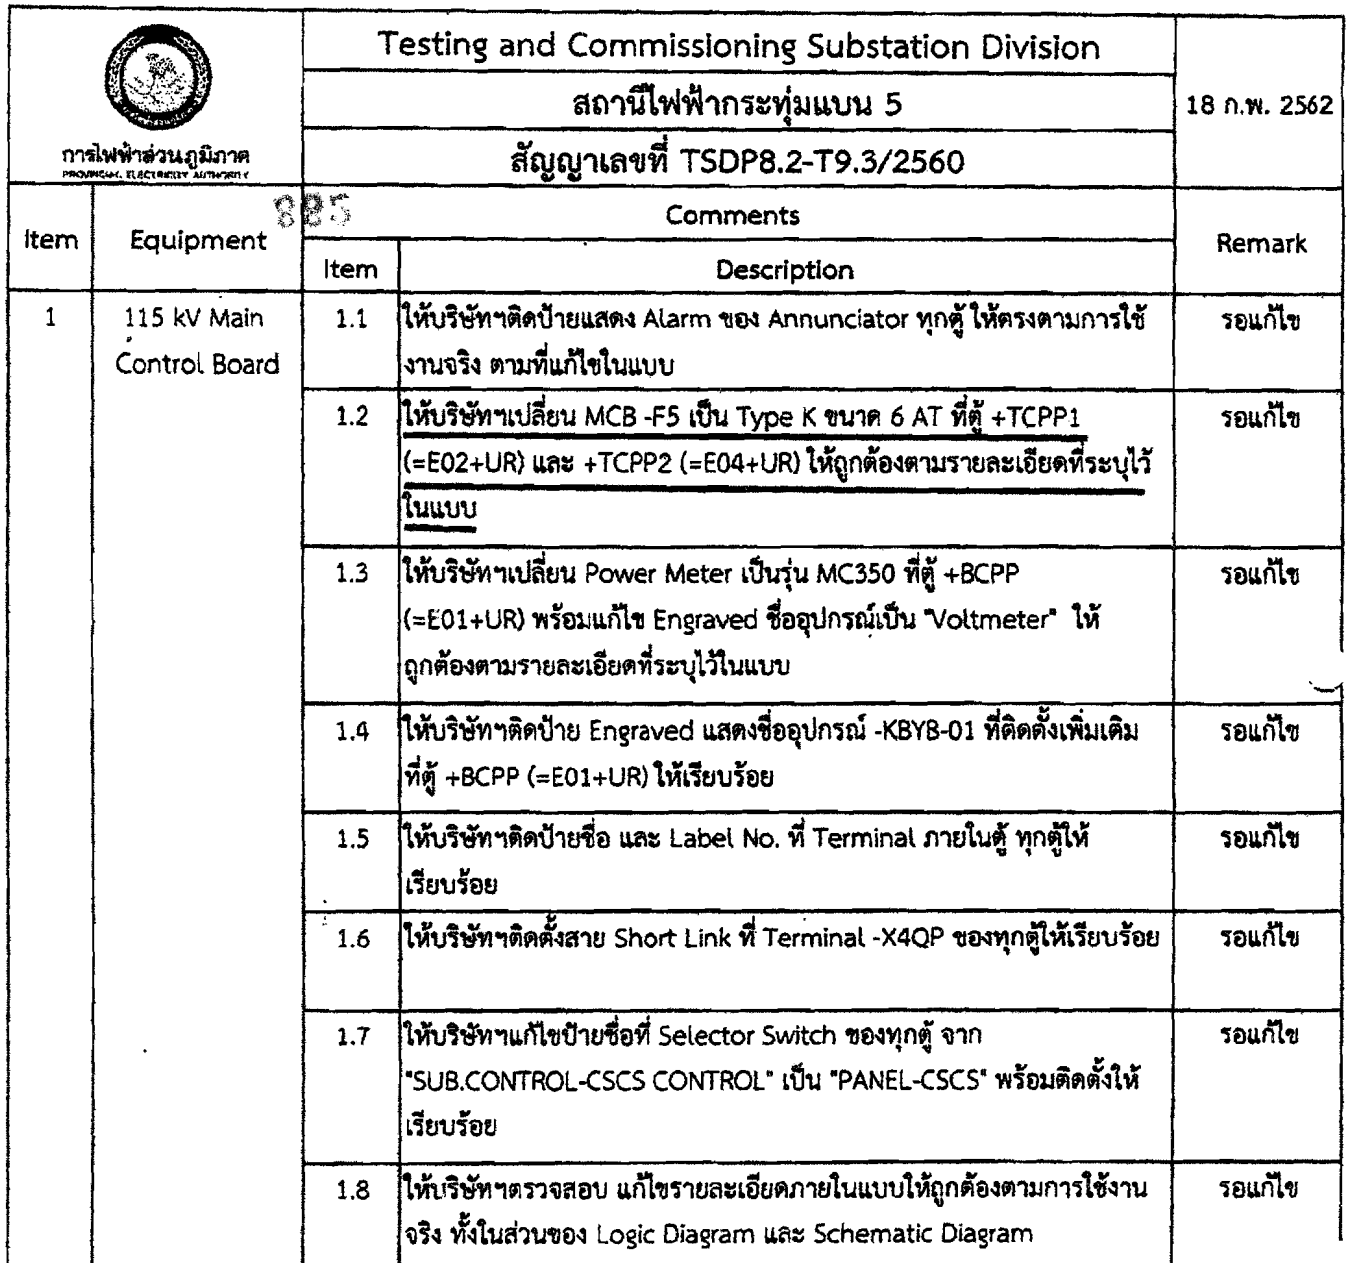 Testing and Commissioning Substation Division
สถานีไฟฟ้ากระทุ่มแบน 5
18 ก.พ. 2562
การไฟฟ้าส่วนภูมิภาค
PROVINCIAL ELECTRICITY AUTHORITY
สัญญาเลขที่ TSDP8.2-T9.3/2560
885
Item
Equipment
Comments
Remark
Item
Description
1
115 kV Main
Control Board
1.1
ให้บริษัทฯติดป้ายแสดง Alarm ของ Annunciator ทุกตู้ ให้ตรงตามการใช้
งานจริง ตามที่แก้ไขในแบบ
รอแก้ไข
1.2
ให้บริษัทฯเปลี่ยน MCB -F5 เป็น Type K ขนาด 6 AT ที่ตู้ +TCPP1
(=E02+UR) และ +TCPP2 (=E04+UR) ให้ถูกต้องตามรายละเอียดที่ระบุไว้
ในแบบ
รอแก้ไข
1.3
ให้บริษัทฯเปลี่ยน Power Meter เป็นรุ่น MC350 ที่ตู้ +BCPP
(=E01+UR) พร้อมแก้ไข Engraved ชื่ออุปกรณ์เป็น "Voltmeter" ให้
ถูกต้องตามรายละเอียดที่ระบุไว้ในแบบ
รอแก้ไข
1.4
ให้บริษัทฯติดป้าย Engraved แสดงชื่ออุปกรณ์ -KBYB-01 ที่ติดตั้งเพิ่มเติม
ที่ตู้ +BCPP (=E01+UR) ให้เรียบร้อย
รอแก้ไข
1.5
ให้บริษัทฯติดป้ายชื่อ และ Label No. ที่ Terminal ภายในตู้ ทุกตู้ให้
เรียบร้อย
รอแก้ไข
1.6
ให้บริษัทฯติดตั้งสาย Short Link ที่ Terminal -X4QP ของทุกตู้ให้เรียบร้อย
รอแก้ไข
1.7
ให้บริษัทฯแก้ไขป้ายชื่อที่ Selector Switch ของทุกตู้ จาก
"SUB.CONTROL-CSCS CONTROL" เป็น "PANEL-CSCS" พร้อมติดตั้งให้
เรียบร้อย
รอแก้ไข
1.8
ให้บริษัทฯตรวจสอบ แก้ไขรายละเอียดภายในแบบให้ถูกต้องตามการใช้งาน
จริง ทั้งในส่วนของ Logic Diagram และ Schematic Diagram
รอแก้ไข